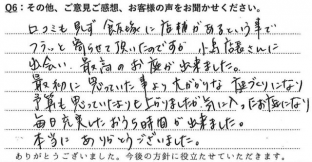 Q6：その他、ご意見ご感想、お客様の声をお聞かせください。
口コミも見ず飯塚に店舗があるという事で
フラッと寄らせて頂いたのですが 小島店長さんに
出会い、最高のお庭が出来ました。
最初に思っていた事より大がかりな 庭づくりになり
予算も思っていたよりも上りましたが気に入ったお庭になり
毎日充実したおうち時間が出来ました。
本当に ありがとうございました。
ありがとうございました。今後の方針に役立たせていただきます。